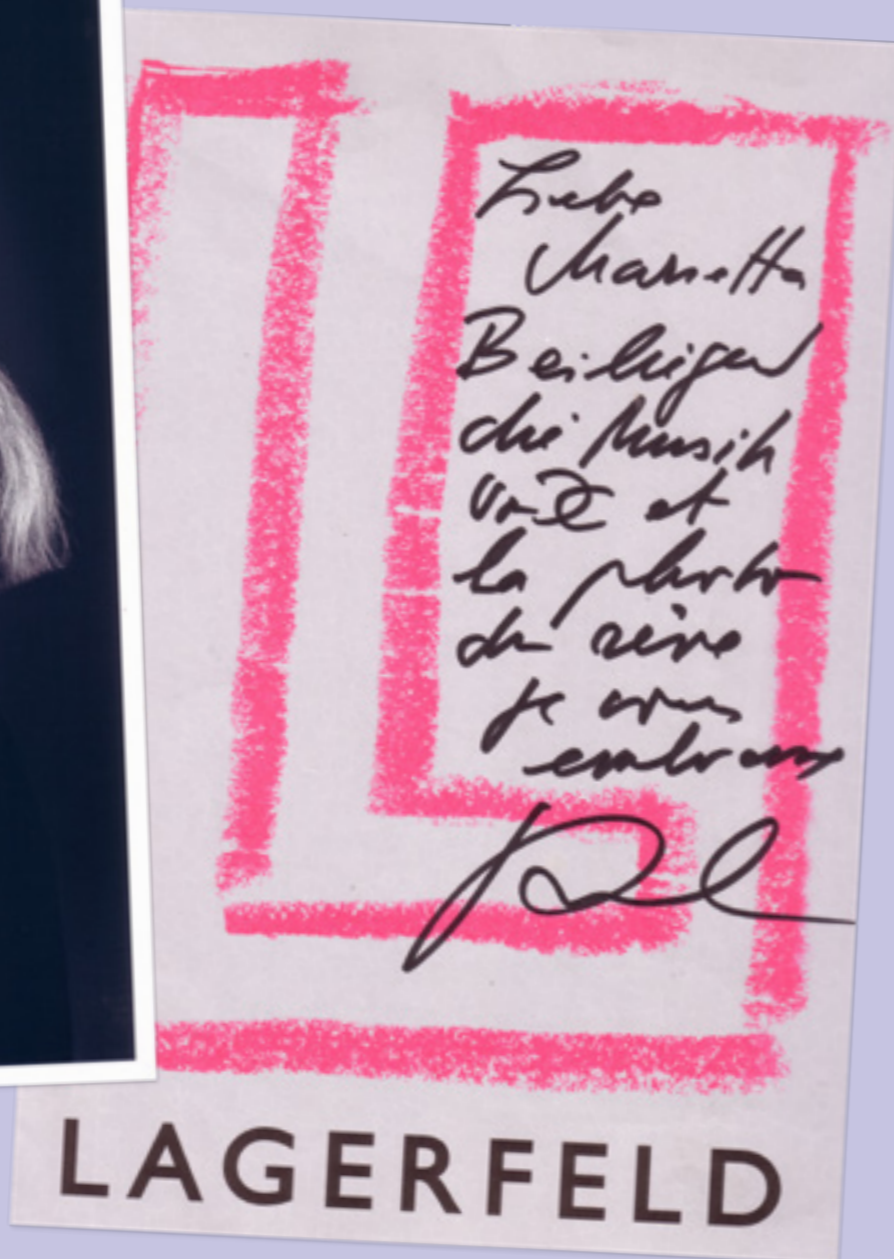 Liebe
Marietta
Beiliegend
die Musik
et
la photo
de rêve
je vous
embrasse
LAGERFELD